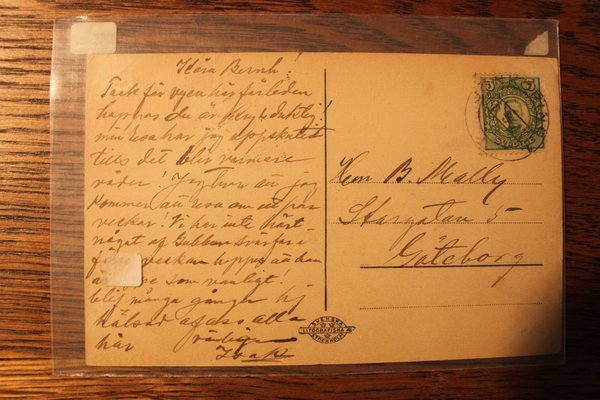 Kära Bernh!
Tack för vyen härförleden
hoppas du är kry & duktig!
min resa har jag uppskjutit
tills det blir varmare
väder! Jag tror att jag
kommer att resa om ett par
veckor! Vi har inte hört
något af Gubben
veckan hoppas att han
som vanligt!
många gånger
hälsad af oss alla
här
Herr B. Mally
Storgatan 5
Göteborg
5
SVENSKA
LITOGRAFISKA
STOCKHOLM